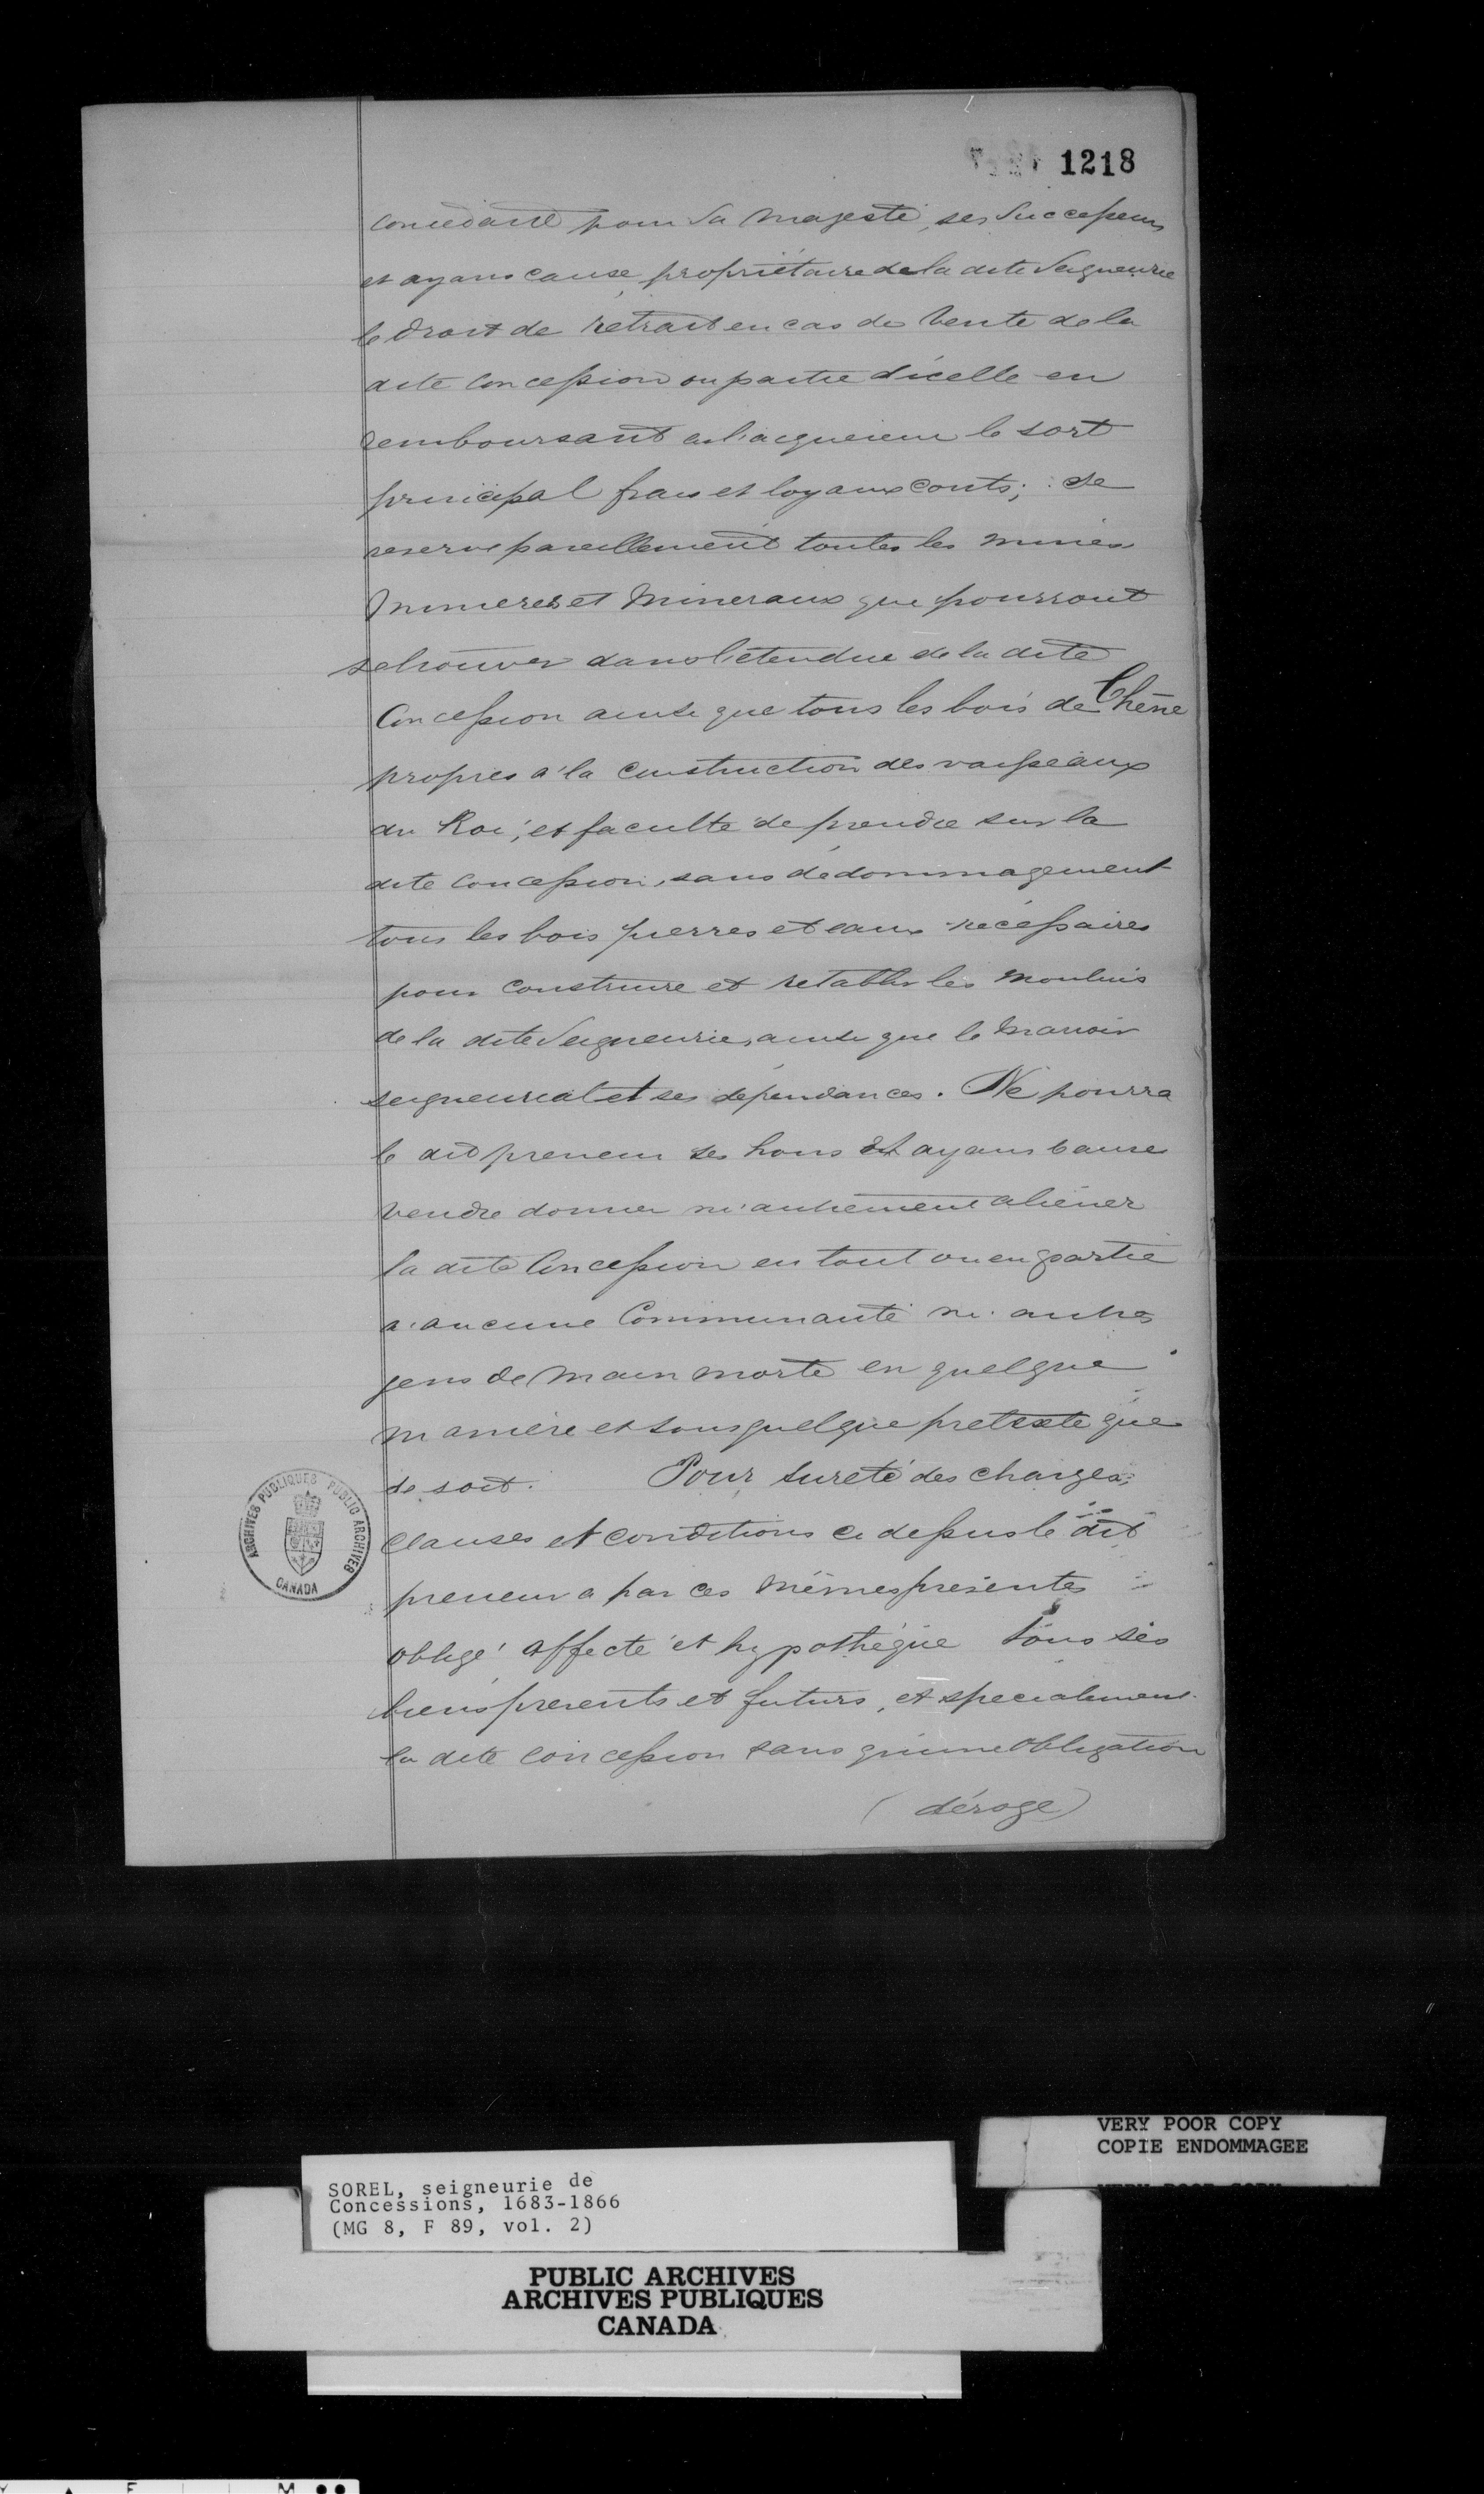 1218
concédant pour Sa Majesté, ses Successeurs
et ayans cause, propriétaire de la dite Seigneurie
le droit de retrait en cas de Vente de la
dite Concession ou partie d'icelle en
remboursant à l'acquereur le sort
principal frais et loyaux couts; se
reserve pareillement toutes les mines
minieres et Mineraux que pourront
se trouver dans l'étendue de la dite
Concession ainsi que tous les bois de Chêne
propres à la construction des vaisseaux
du Roi, et faculté de prendre sur la
dite concession, sans dédommagement
tous les bois pierres et eaux nécessaires
pour construire et retablir les Moulins
de la dite Seigneurie, ainsi que le Manoir
seigneurial et ses dépendances. Ne pourra
le dit preneur ses hoirs et ayans cause
vendre donner ni autrement aliéner
la dite Concession en tout ou en partie
à aucune Communauté ni autres
gens de Main morte en quelque
manière et sous quelque pretexte que
ce soit. Pour sureté des charges,
clauses et conditions ci dessus le dit
preneur a par ces mêmes presentes
obligé affecté et hypothéqué tous ses
biens presents et futurs, et specialement
la dite concession sans qu'une obligation
(déroge)
ARCHIVES PUBLIQUES PUBLIC ARCHIVES
CANADA
VERY POOR COPY
COPIE ENDOMMAGEE
VERY POOR COPY
SOREL, seigneurie de
Concessions, 1683-1866
(MG 8, F 89, vol. 2)
PUBLIC ARCHIVES
ARCHIVES PUBLIQUES
CANADA